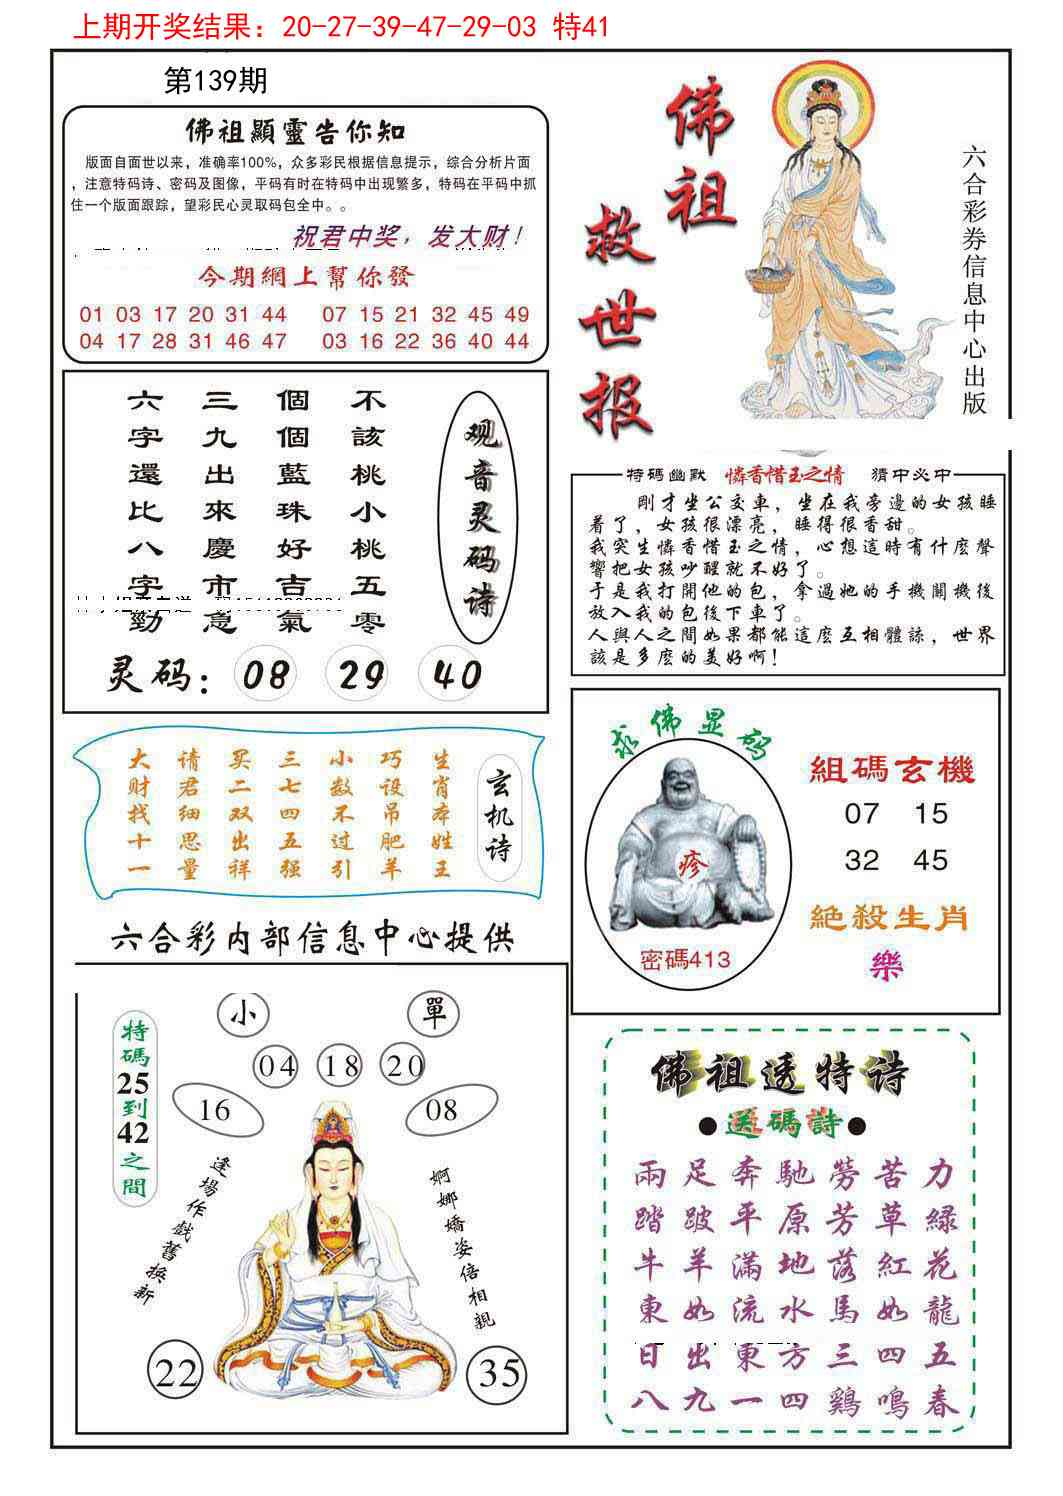 上期开奖结果：20-27-39-47-29-03 特41
第139期
佛祖顯靈告你知
版面自面世以来，准确率100%，众多彩民根据信息提示，综合分析片面
，注意特码诗、密码及图像，平码有时在特码中出现繁多，特码在平码中抓
住一个版面跟踪，望彩民心灵取码包全中。。
祝君中奖，发大财！
今期網上幫你發
01 03 17 20 31 44 07 15 21 32 45 49
04 17 28 31 46 47 03 16 22 36 40 44
佛祖
救世报
六合彩券信息中心出版
观音灵码诗
不該桃小桃五零
個個藍珠好吉氣
三九出來慶市意
六字還比八字勁
灵码：08 29 40
特碼幽默 憐香惜玉之情 猜中必中
剛才坐公交車，坐在我旁邊的女孩睡
着了，女孩很漂亮，睡得很香甜。
我突生憐香惜玉之情，心想這時有什麽聲
響把女孩吵醒就不好了。
于是我打開他的包，拿過她的手機關機後
放入我的包後下車了。
人與人之間如果都能這麽互相體諒，世界
該是多麽的美好啊！
玄机诗
生肖本姓王
巧设吊肥羊
小数不过引
三七四五强
买二双出祥
请君细思量
大财找十一
求佛显码
疹
密碼413
組碼玄機
07 15
32 45
絕殺生肖
樂
六合彩内部信息中心提供
小 單
04 18 20
16 08
特碼25到42之間
逢場作戲舊換新
婀娜嬌姿倍相親
22 35
佛祖透特诗
●送碼詩●
兩足奔馳勞苦力
踏跛平原芳草緑
牛羊滿地落紅花
東如流水馬如龍
日出東方三四五
八九一四鷄鳴春